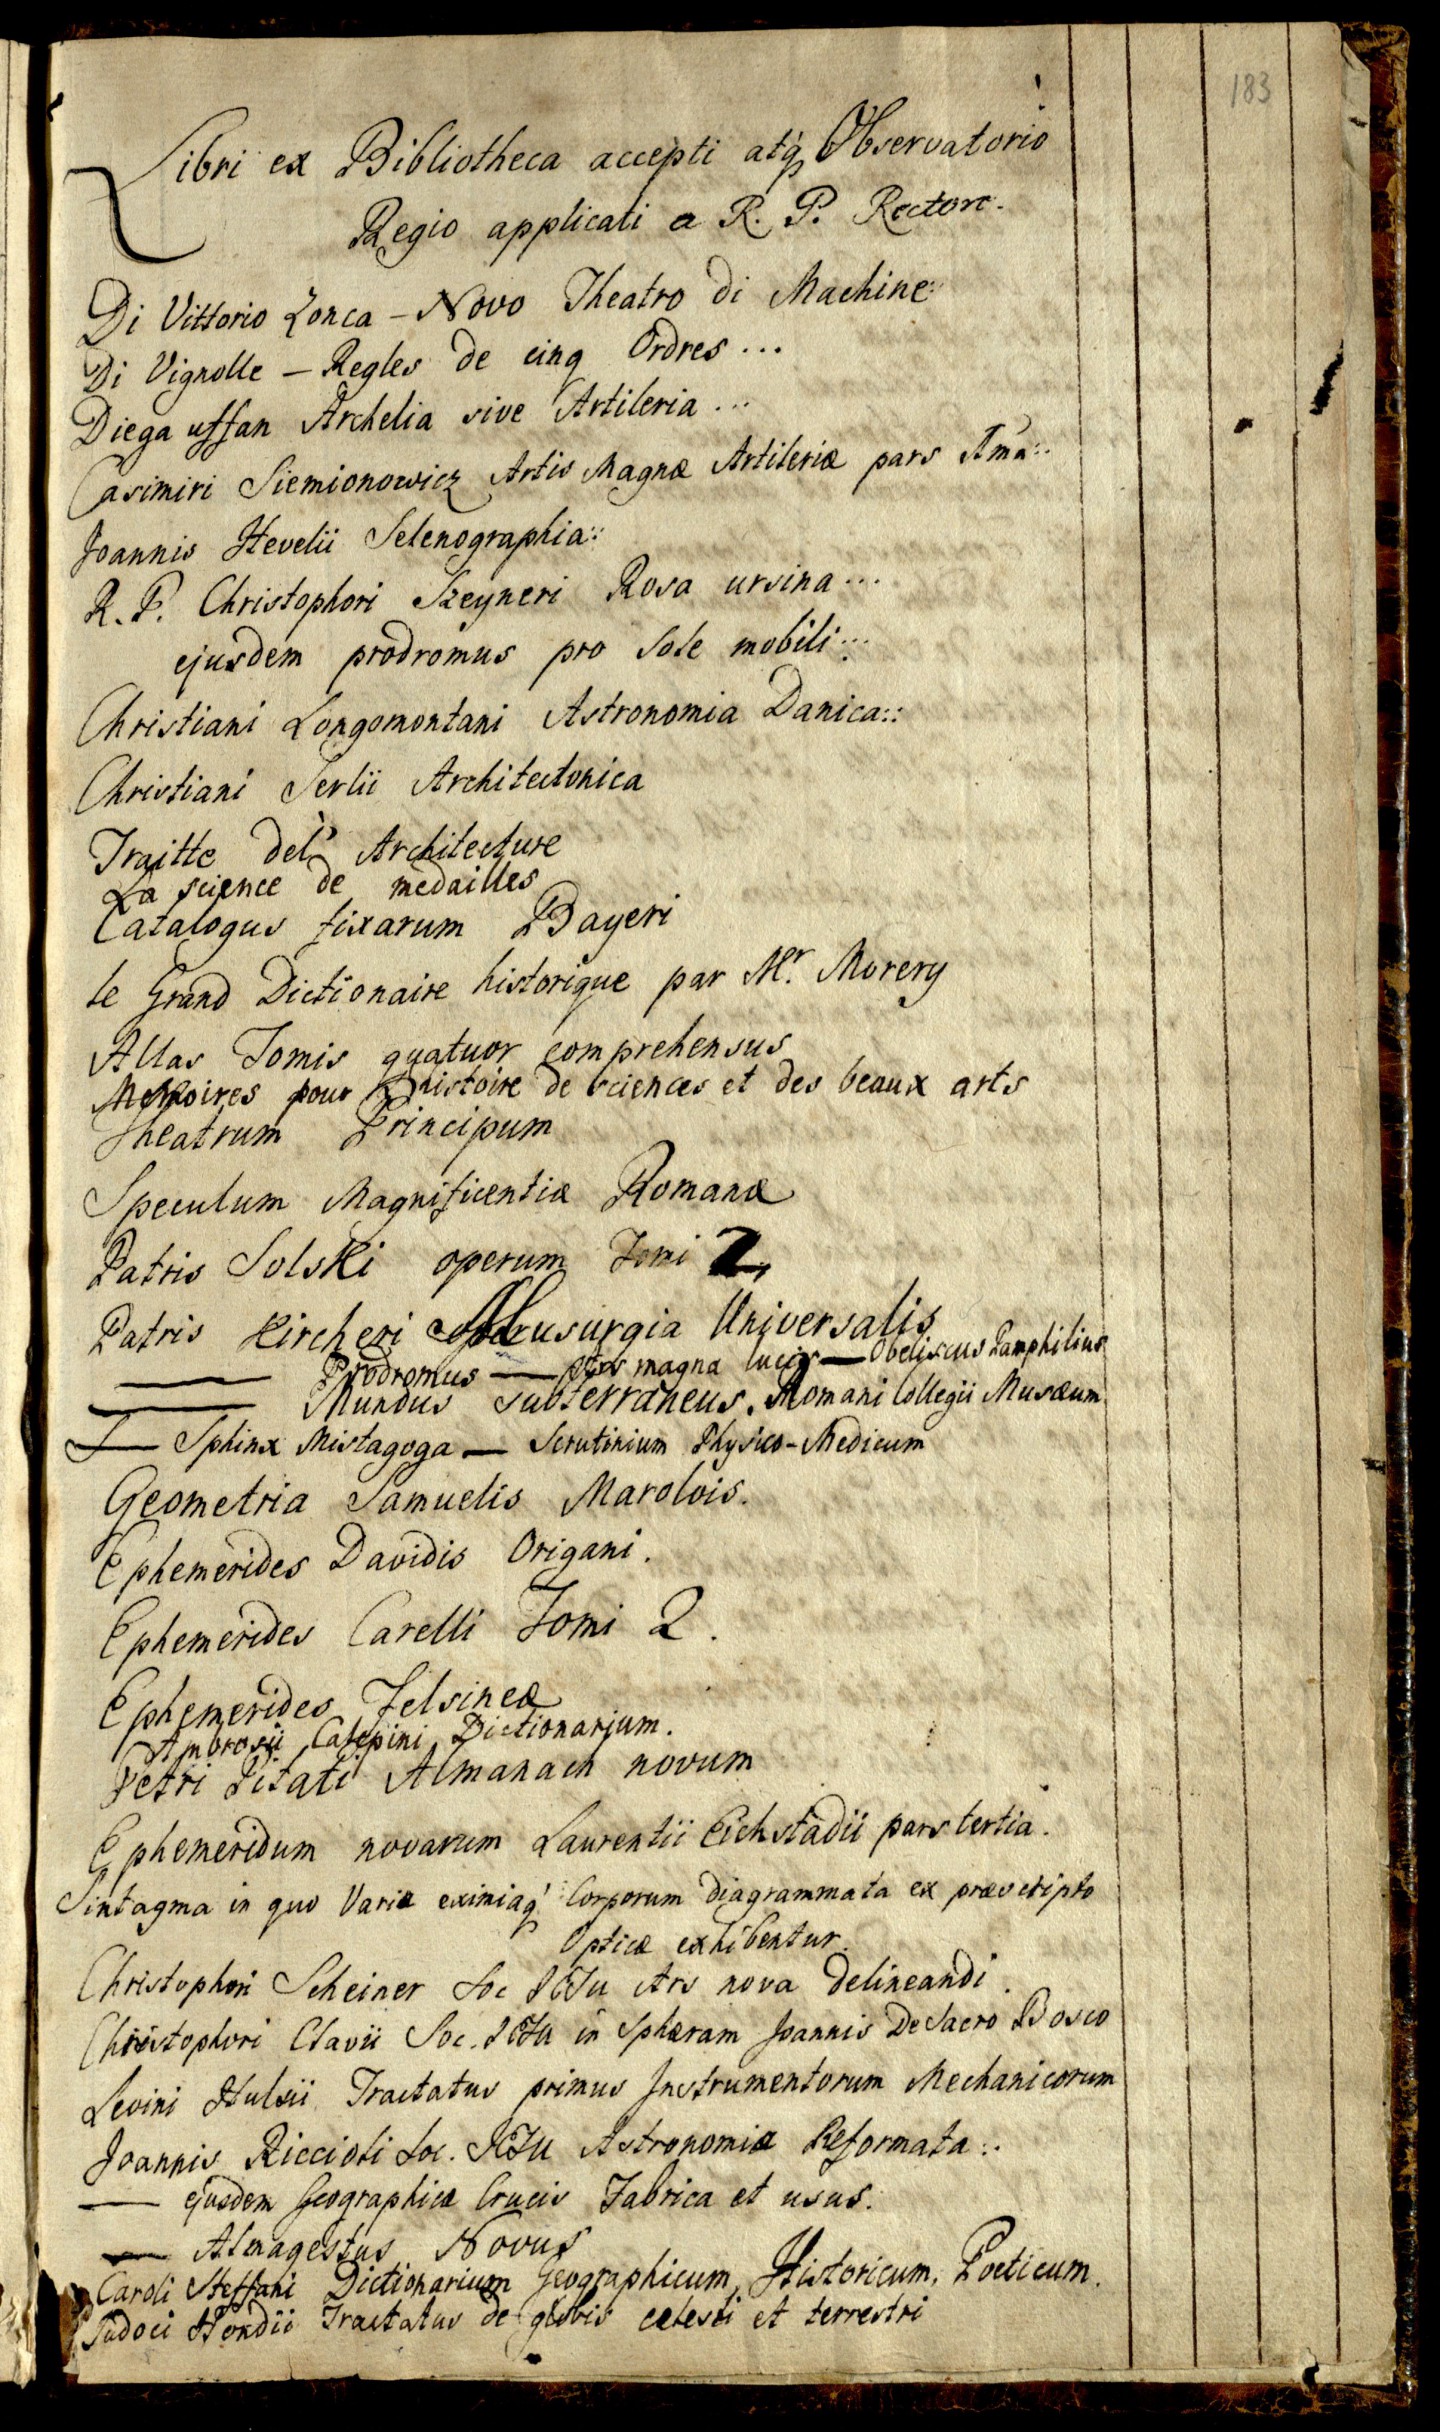 183
Libri ex Bibliotheca accepti atq́ Observatorio
Regio applicati a R. P. Rectore.
Di Vittorio Zonca – Novo Theatro di Machine:
Di Vignolle – Regles de cinq Ordres ...
Diega uffan Archelia sive Artileria ...
Casimiri Siemionowicz Artis Magnæ Artileriæ pars Ima:.
Joannis Hevelii Selenographia::
R. P. Christophori Szeyneri Rosa ursina ...
ejusdem prodromus pro Sole mobili ...
Christiani Longomontani Astronomia Danica::
Christiani Serlii Architectonica
Traitte del' Architecture
La science de medailles
Catalogus fixarum Bayeri
le Grand Dictionaire historique par Mr. Morery
Atlas Tomis quatuor comprehensus
Memoires pour l'histoire de sciences et des beaux arts
Theatrum Principum
Speculum Magnificentiæ Romanæ
Patris Solski operum Tomi 2,
Patris Kircheri Musurgia Universalis
— Prodromus — Ars magna lucis — Obeliscus Pamphilius
— Mundus subterraneus. Romani Collegii Musæum
— Sphinx Mistagoga — Scrutinium Physico-Medicum
Geometria Samuelis Marolois.
Ephemerides Davidis Origani.
Ephemerides Carelli Tomi 2.
Ephemerides Felsineæ
Ambrosii Calepini Dictionarium.
Petri Pitati Almanach novum
Ephemeridum novarum Laurentii Eichstadii pars tertia.
Sintagma in quo Variæ eximiaq́ Corporum diagrammata ex præscripto
Opticæ exhibentur.
Christophori Scheiner Soc JESu Ars nova delineandi.
Christophori Clavii Soc. JESu in Sphæram Joannis De Sacro Bosco
Levini Hulsii Tractatus primus Instrumentorum Mechanicorum
Joannis Riccioli Soc. JESu Astronomiæ Reformata:.
— ejusdem Geographicæ Crucis Fabrica et usus.
— Almagestus Novus
Caroli Steffani Dictionarium Geographicum, Historicum, Poeticum.
Judoci Hondii Tractatus de globis cælesti et terrestri